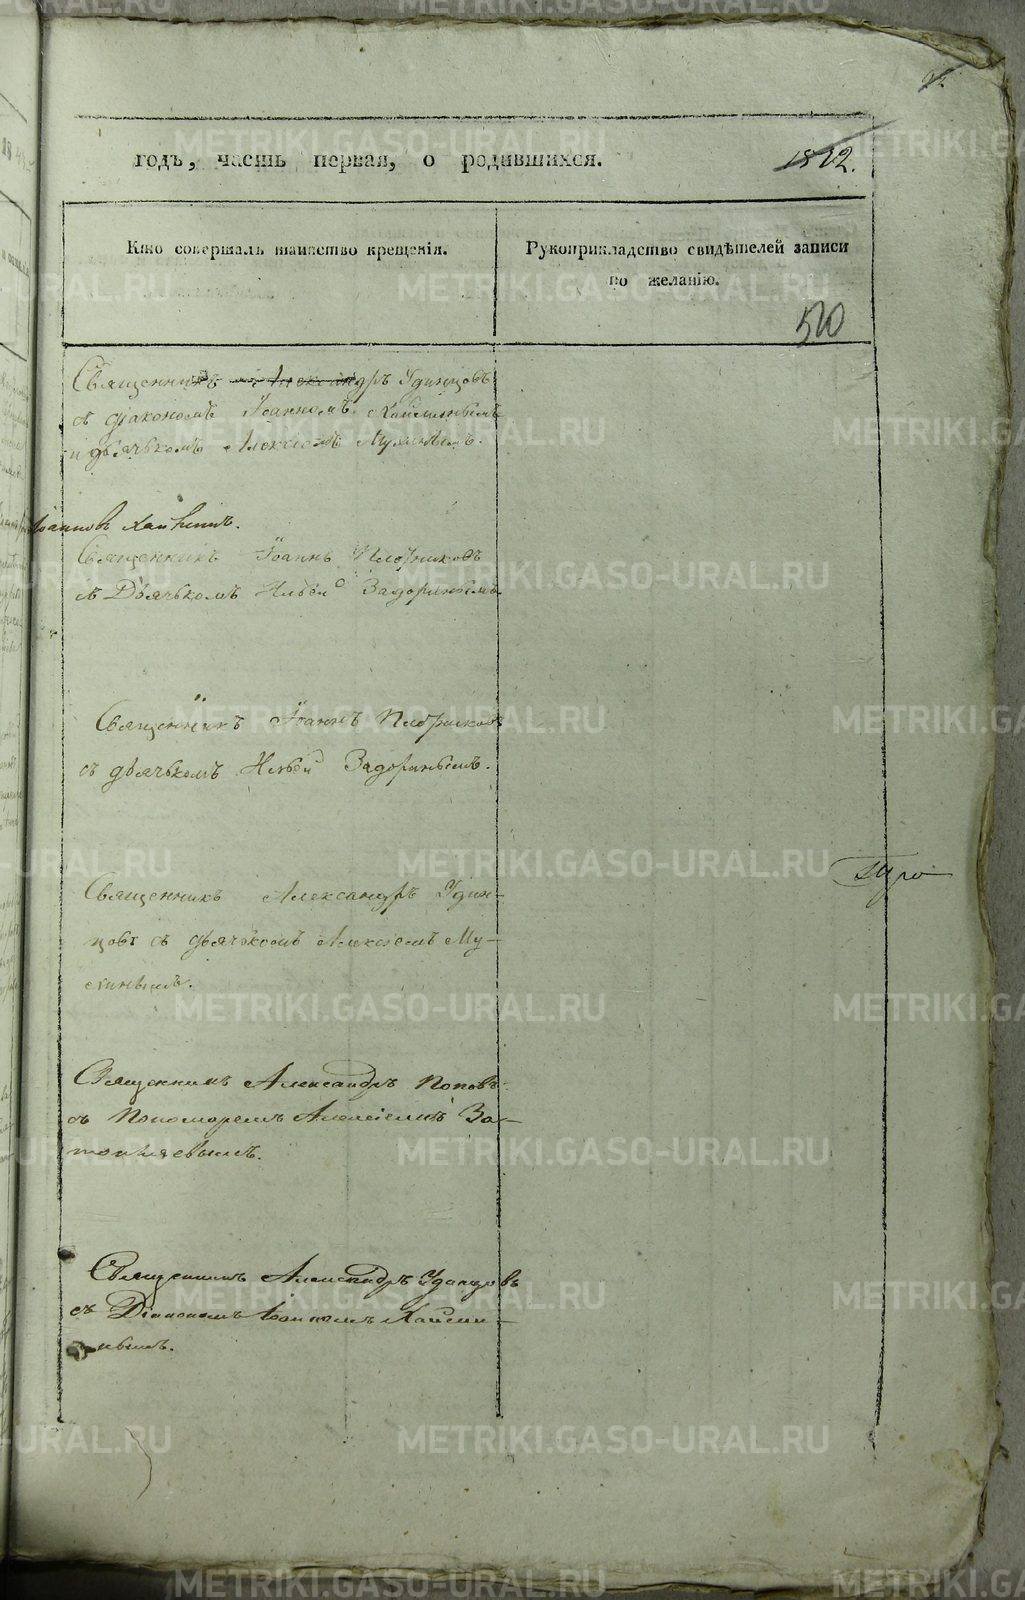 годъ, часть первая, о родившихся.
1822.
Кто совершалъ таинство крещенія.
Рукоприкладство свидѣтелей записи
по желанію.
520
Священникъ Александръ Удинцовъ
съ діакономъ Іоанномъ
и дьячькомъ Алексіемъ Мухинымъ.
Священникъ Іоаннъ Плотниковъ
съ Дьячькомъ Ильёй Задоринымъ
Священникъ Іоаннъ Плотниковъ
съ дьячькомъ Ильёй Задоринымъ.
Священникъ Александръ Удин-
цовъ съ дьячькомъ Алексіемъ Му-
хинымъ.
Священникъ Александръ Поповъ
съ Пономоремъ Алексіемъ За-
Священникъ Александръ Удинцовъ
съ Діакономъ Іоанномъ
METRIKI.GASO-URAL.RU